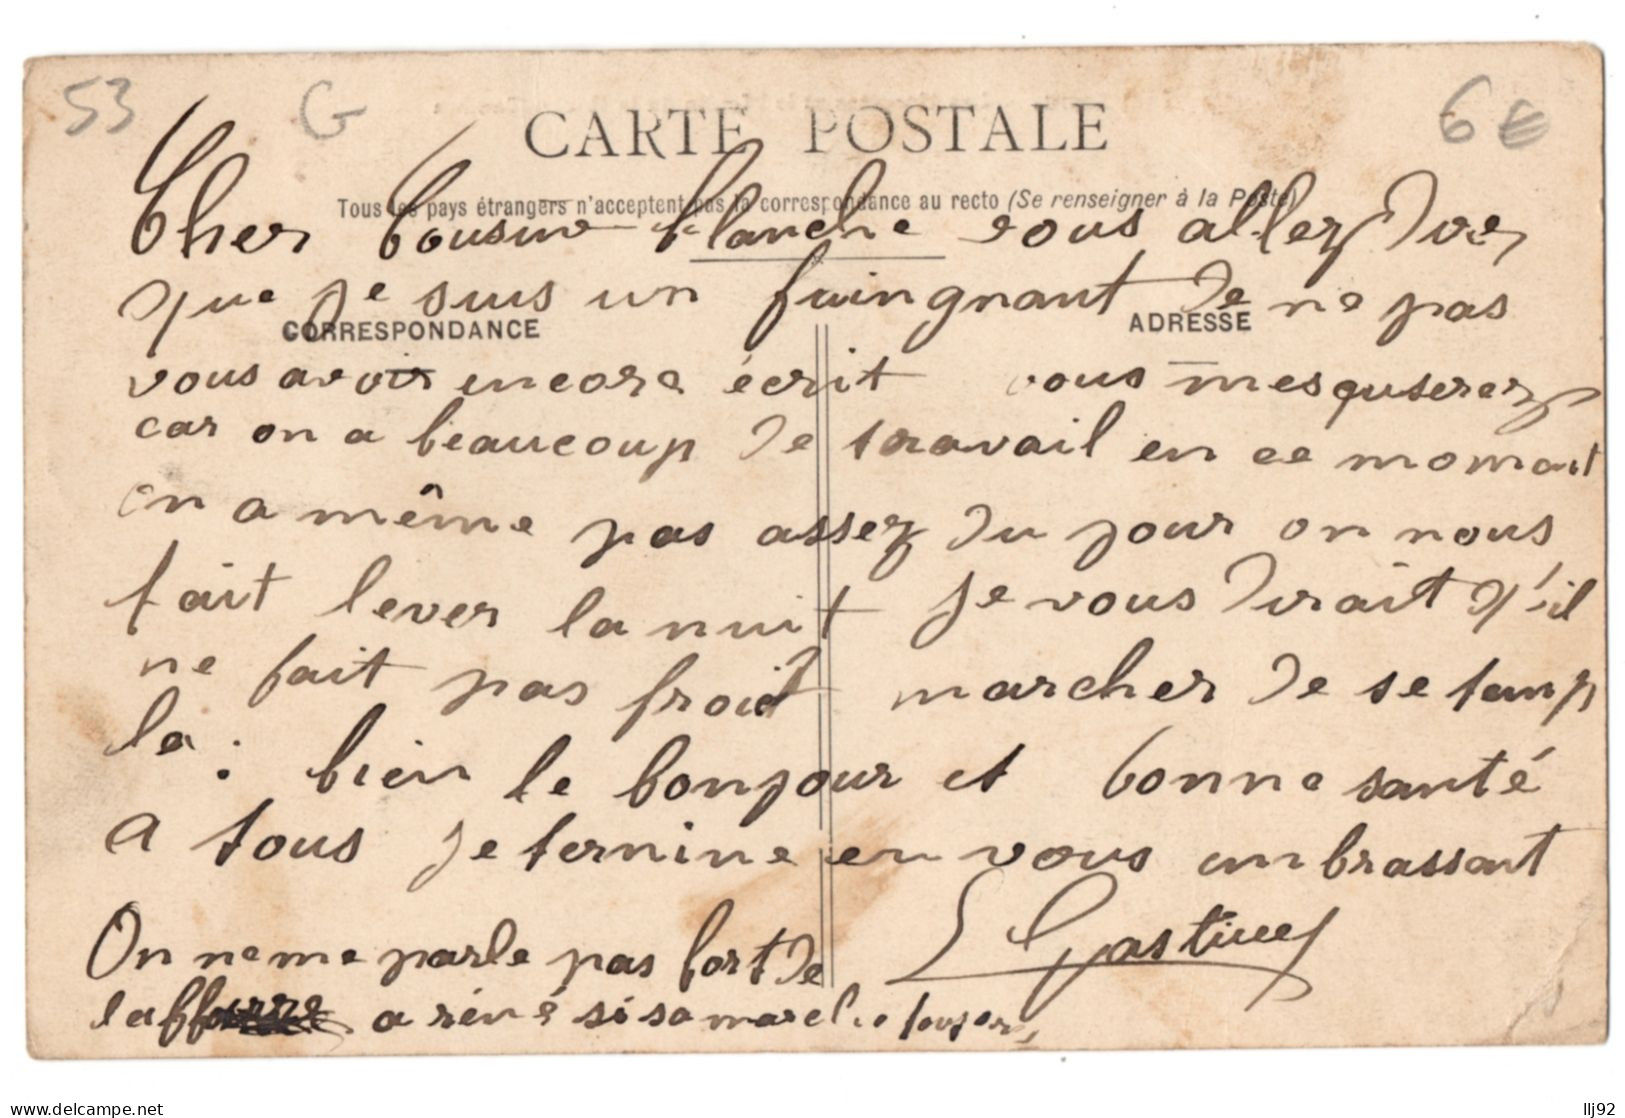 53 G 6€
CARTE POSTALE
Tous les pays étrangers n'acceptent pas la correspondance au recto (Se renseigner à la Poste)
Cher Cousine Blanche vous allez dire
que je suis un fuingnant de ne pas
CORRESPONDANCE ADRESSE
vous avoir encore écrit vous mesquserez
car on a beaucoup de travail en ce momant
on a même pas assez du jour on nous
fait lever la nuit je vous dirait q'il
ne fait pas froid marcher de se temp
la : bien le bonjour et bonne santé
a tous je termine en vous embrassant
On ne me parle pas fort de
l'affairre a réné si sa marche toujor
Gastines
www.delcampe.net
llj92